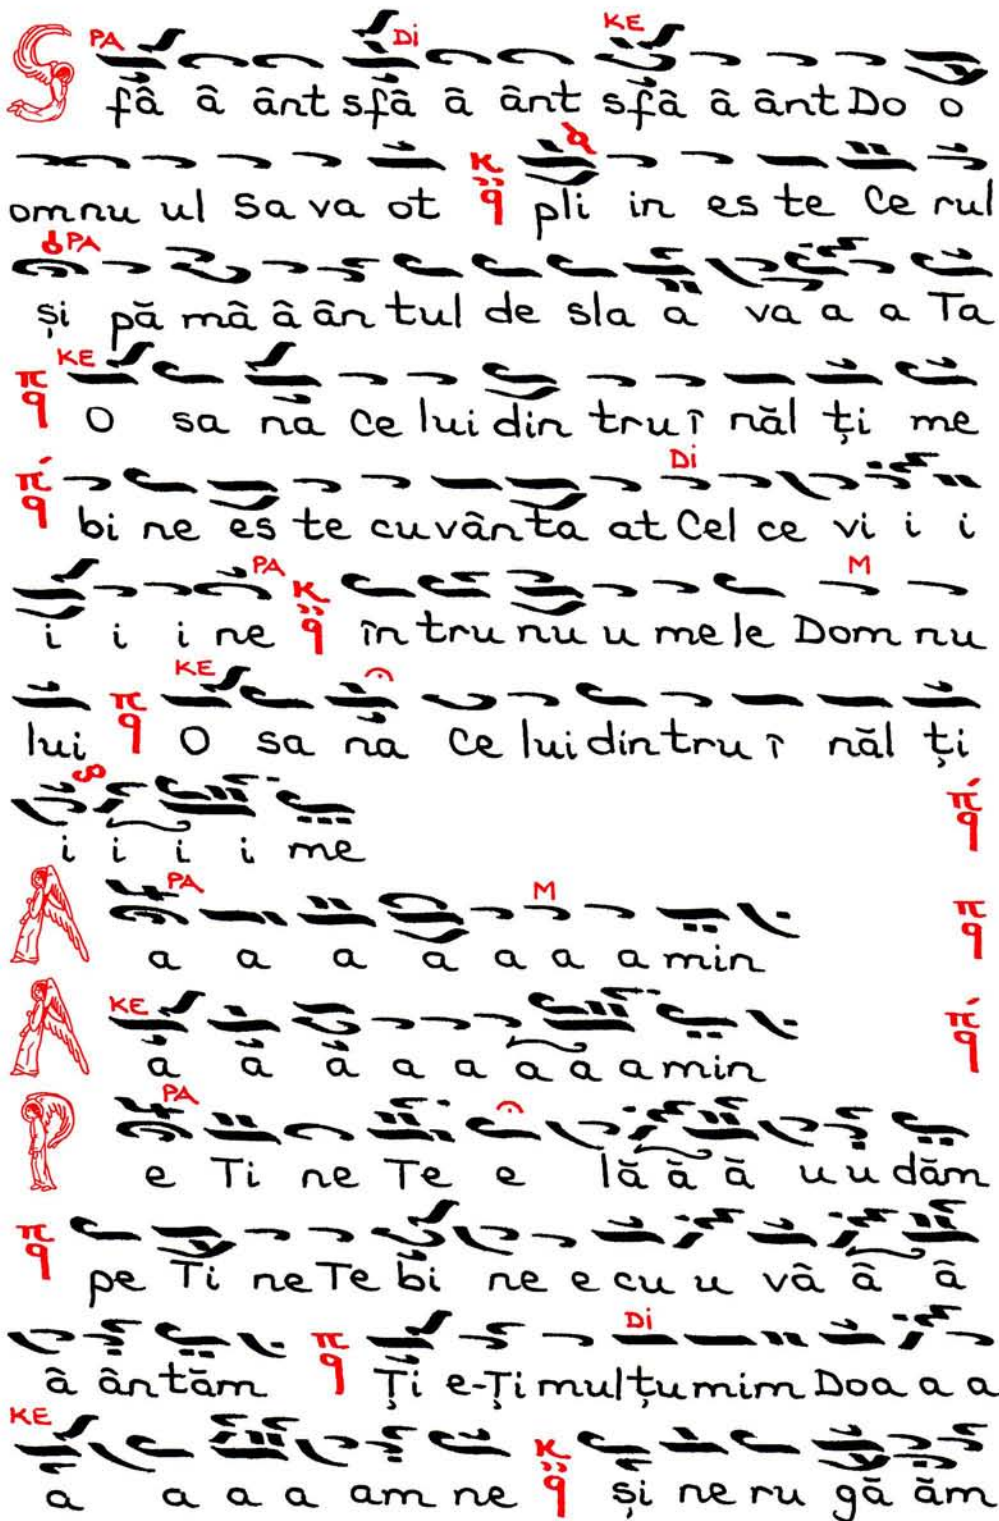 PA Di KE
S fâ â ânt sfâ â ânt sfâ â ânt Do o
omnu ul Sa va ot pli in es te Ce rul
PA
și pă mâ â ân tul de sla a va a a Ta
KE
O sa na Ce lui din tru î năl ți me
Di
bi ne es te cu vân ta at Cel ce vi i i
PA M
i i i ne în tru nu u me le Dom nu
KE
lui O sa na Ce lui din tru î năl ți
i i i i me
PA M
A a a a a a a a min
KE
A a a a a a a a a min
PA
P e Ti ne Te e lă ă ă u u dăm
pe Ti ne Te bi ne e cu u vâ â â
Di
â ân tăm Ți e-Ți mul țu mim Doa a a
KE
a a a a am ne și ne ru gă ăm